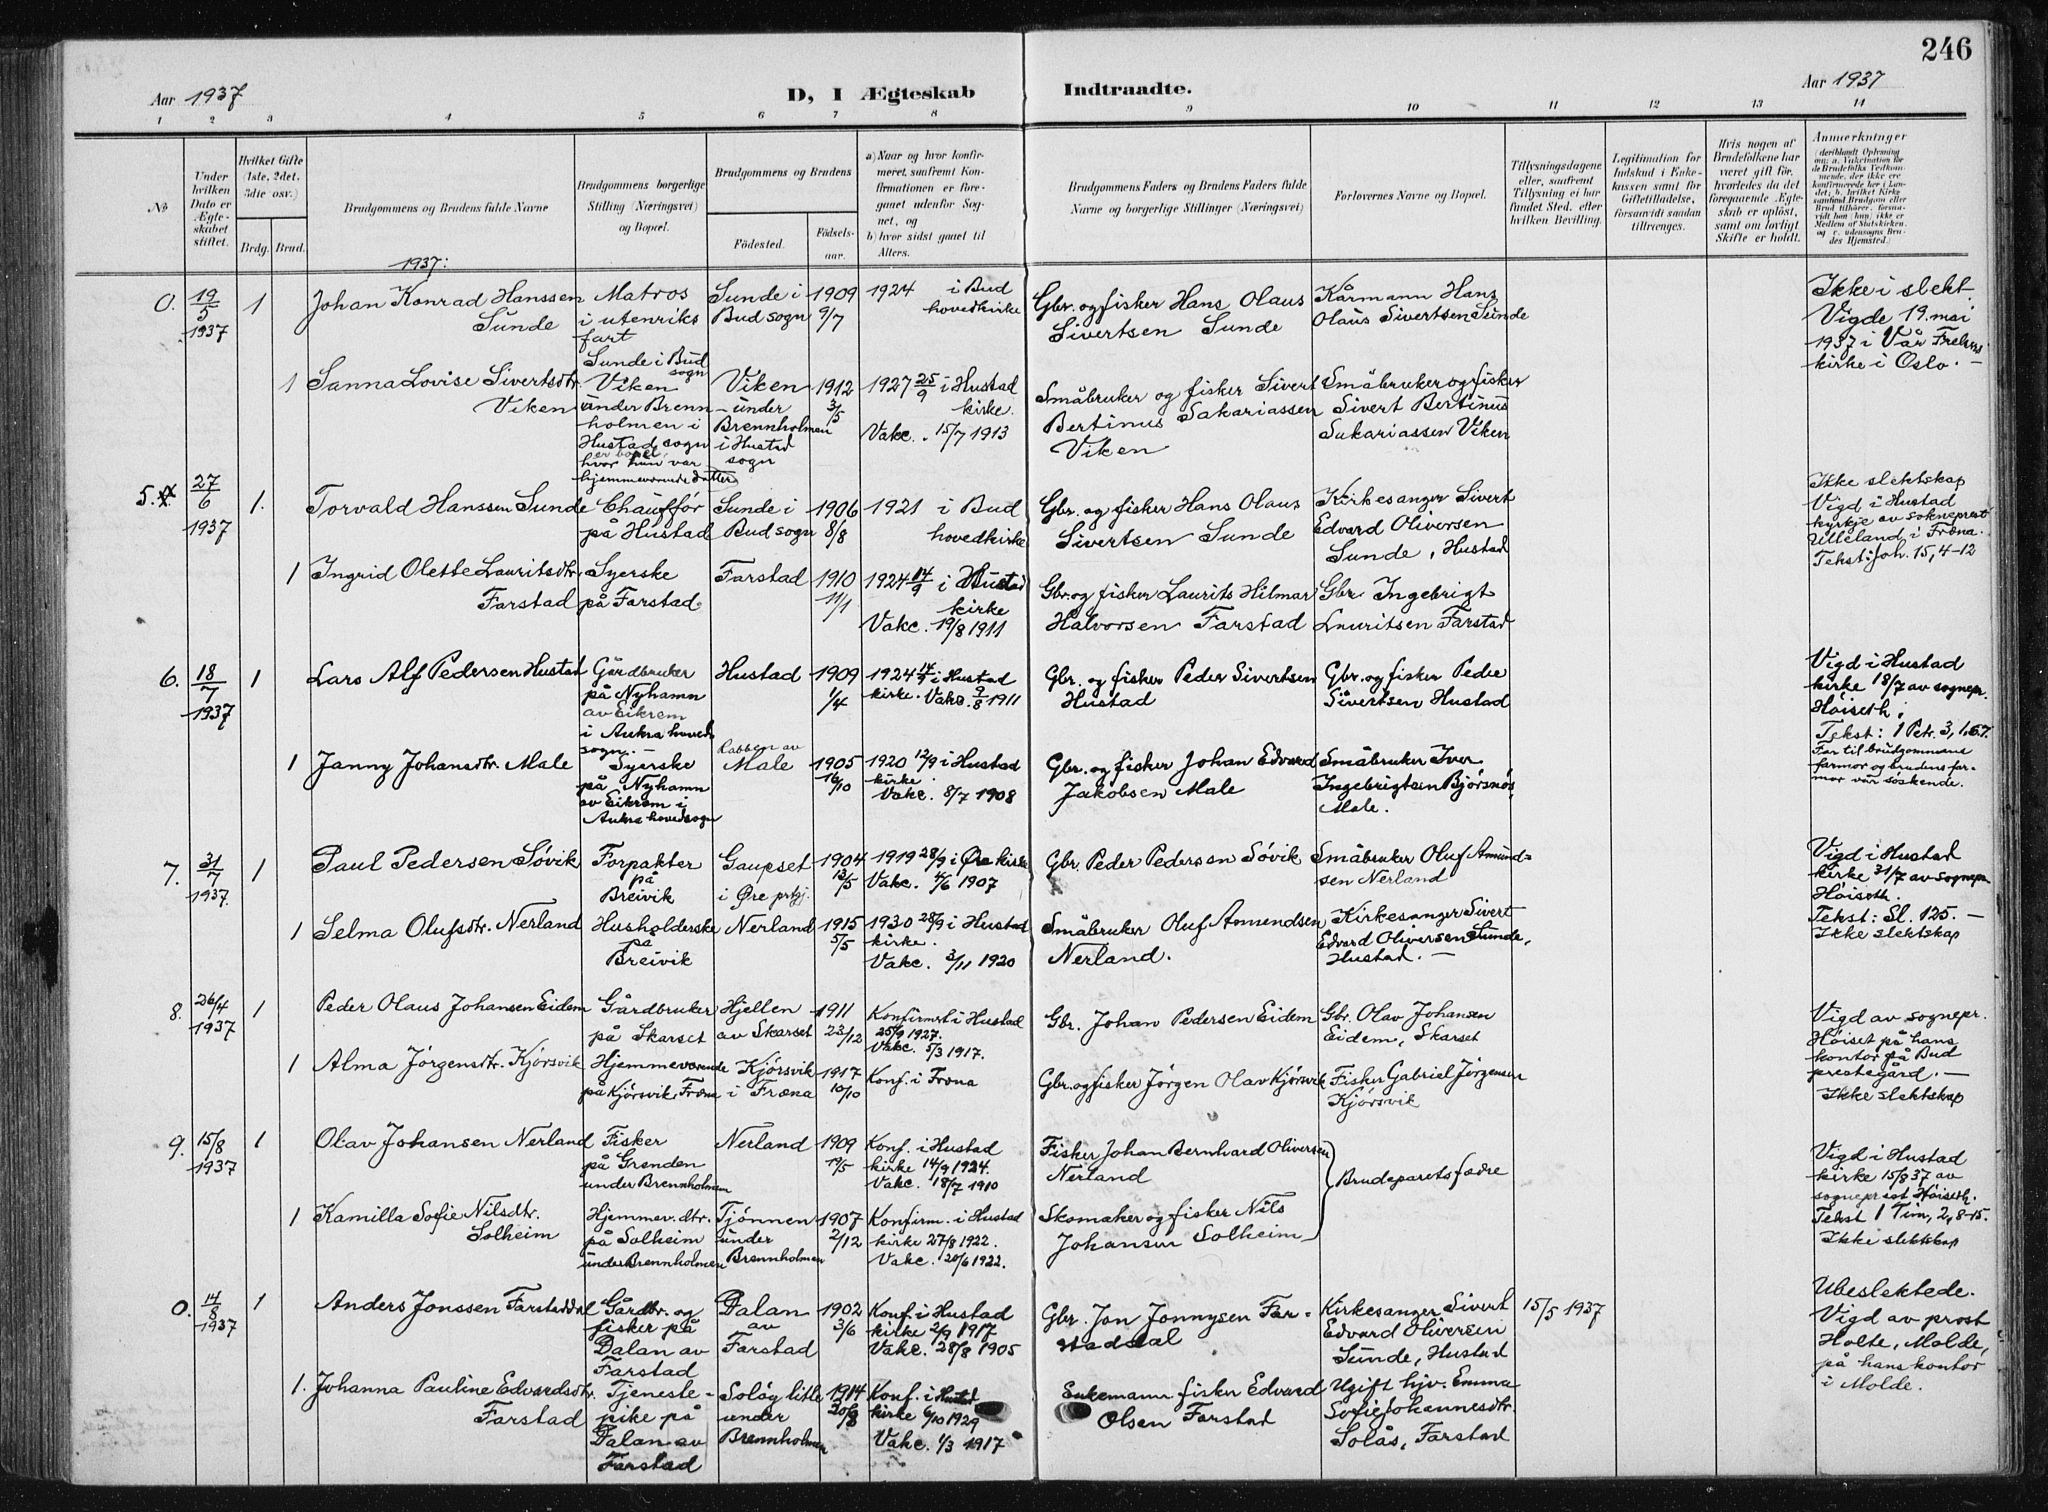 246
Aar 1937
D, I Ægteskab
Indtraadte.
Aar 1937
1 2 3 4 5 6 7 8 9 10 11 12 13 14
No
Under hvilken Dato er Ægteskabet stiftet.
Hvilket Gifte (1ste, 2det, 3die osv.)
Brdg. Brud.
Brudgommens og Brudens fulde Navne
Brudgommens borgerlige Stilling (Næringsvei) og Bopæl.
Brudgommens og Brudens
Fødested.
Fødselsaar.
a) Naar og hvor konfirmeret, saafremt Konfirmationen er foregaaet udenfor Sognet, og
b) hvor sidst gaaet til Alters.
Brudgommens Faders og Brudens Faders fulde Navne og borgerlige Stillinger (Næringsvei)
Forlovernes Navne og Bopæl.
Tillysningsdagene eller, saafremt Tillysning ei har fundet Sted, efter hvilken Bevilling.
Legitimation for Indskud i Enkekassen samt for Giftetilladelse, forsaavidt saadan tiltrænges.
Hvis nogen af Brudefolkene har været gift før, hvorledes da det foregaaende Ægteskab er opløst, samt om lovligt Skifte er holdt.
Anmerkninger
1937:
0. 19/5 1937 1
Johan Konrad Hanssen
Sunde
Matros
i utenriks
fart
Sunde i Bud
sogn
Sunde i
Bud sogn
1909
9/7
1924 i Bud
hovedkirke
Gbr. og fisker Hans Olaus
Sivertsen Sunde
Kårmann Hans
Olaus Sivertsen Sunde
Ikke i slekt.
Vigde 19. mai
1937 i Vår Frelsers
kirke i Oslo. —
1
Sanna Lovise Sivertsdtr.
Viken
Viken
under Brenn-
holmen i
Hustad sogn
er bopel,
hvor hun var
hjemmeværende datter
Viken
under
Brennholmen
i Hustad
sogn
1912
3/5
1927 25/9 i Hustad
kirke.
Vakc. 15/7 1913
Småbruker og fisker Sivert
Bertinus Sakariassen
Viken
Småbruker og fisker
Sivert Bertinus
Sakariassen Viken
5. 27/6 1937 1.
Torvald Hanssen Sunde
Chauffør
på Hustad
Sunde i
Bud sogn
1906
8/8
1921 i Bud
hovedkirke
Gbr. og fisker Hans Olaus
Sivertsen Sunde
Kirkesanger Sivert
Edvard Oliversen
Sunde, Hustad
Ikke slektskap
Vigd i Hustad
kyrkje av sokneprest
Ulleland i Fræna.
Tekst: Joh. 15, 4-12
1
Ingrid Olette Lauritsdtr.
Farstad
Syerske
på Farstad.
Farstad
1910
11/1
1924 14/9 i Hustad
kirke
Vakc. 19/8 1911
Gbr. og fisker Laurits Hilmar
Halvorsen Farstad
Gbr Ingebrigt
Lauritsen Farstad
6. 18/7 1937 1
Lars Alf Pedersen Hustad
Gårdbruker
på Nyhamn
av Eikrem
i Aukra hoved-
sogn. —
Hustad
1909
1/4
1924 14/9 i Hustad
kirke. Vakc. 9/8 1911
Gbr. og fisker Peder Sivertsen
Hustad
Gbr. og fisker Peder
Sivertsen Hustad
Vigd i Hustad
kirke 18/7 av sognepr.
Høiseth.
Tekst: 1 Petr. 3, 1.6.7.
Far til brudgommens
farmor og brudens far-
mor var søskende.
1
Janny Johansdtr. Male
Syerske
på Nyhamn
av Eikrem i
Aukra hovedsogn
Rabben av
Male
1905
16/10
1920 12/9 i Hustad
kirke.
Vakc. 8/7 1908
Gbr. og fisker Johan Edvard
Jakobsen Male
Småbruker Iver
Ingebrigtsen Bjørsnøs,
Male.
7. 31/7 1937. 1
Paul Pedersen Søvik
Forpakter
på
Breivik
Gaupset
i Øre prtgj.
1904
13/5
1919 28/9 i Øre kirke
Vakc. 4/6 1907
Gbr Peder Pedersen Søvik
Småbruker Oluf Amund-
sen Nerland
Vigd i Hustad
kirke 31/7 av sognepr.
Høiseth.
Tekst: Sl. 125. —
Ikke slektskap
1
Selma Olufsdtr. Nerland
Husholderske
på
Breivik
Nerland
1915
5/5
1930 28/9 i Hustad
kirke.
Vakc. 3/11 1920
Småbruker Oluf Amundsen
Nerland.
Kirkesanger Sivert
Edvard Oliversen Sunde,
Hustad. —
8. 26/4 1937 1
Peder Olaus Johansen Eidem
Gårdbruker
på Skarset
Hjellen
av Skarset
1911
23/12
Konfirmert i Hustad
25/9 1927.
Vakc. 5/3 1917.
Gbr. Johan Pedersen Eidem
Gbr. Olav Johansen
Eidem, Skarset
Vigd av sognepr.
Høiset på hans
kontor på Bud
prestegård. —
Ikke slektskap
1
Alma Jørgensdtr. Kjørsvik
Hjemmeværende
på Kjørsvik, Fræna
Kjørsvik
i Fræna
1917
10/10
Konf. i Fræna
Gbr. og fisker Jørgen Olav Kjørsvik
Fisker Gabriel Jørgensen
Kjørsvik
9. 15/8 1937 1
Olav Johansen Nerland
Fisker
på Grenden
under Brennholmen
Nerland
1909
Konf. i Hustad
kirke 14/9 1924.
Vakc. 18/7 1910
Fisker Johan Bernhard Oliversen
Nerland
Brudeparets fædre
Vigd i Hustad
kirke 15/8 37 av
sogneprest Høiseth.
Tekst 1 Tim, 2, 8-15.
Ikke slektskap
1
Kamilla Sofie Nilsdtr.
Solheim
Hjemmev. dtr.
på Solheim
under Brennholmen
Tjønnen
under
Brennholmen
1907
2/12
Konfirm. i Hustad
kirke 27/8 1922.
Vakc. 20/6 1922.
Skomaker og fisker Nils
Johansen Solheim
0. 14/8 1937 1
Anders Jonssen Farstaddal
Gårdbr. og
fisker på
Dalan av
Farstad
Dalan
av
Farstad
1902
3/6
Konf. i Hustad
kirke 2/9 1917
Vakc. 28/8 1905
Gbr. Jon Jonnysen Far-
staddal
Kirkesanger Sivert
Edvard Oliversen
Sunde, Hustad
15/5 1937
Ubeslektede.
Vigd av prost
Holte, Molde,
på hans kontor
i Molde.
1.
Johanna Pauline Edvardsdtr.
Farstad
Tjeneste-
pike på
Dalan av
Farstad
Soløy litle
under
Brennholmen
1914
30/8
Konf. i Hustad
kirke 6/10 1929
Vakc. 1/3 1917
Enkemann fisker Edvard
Olsen Farstad
Ugift hjv. Emma
Sofie Johannesdtr.
Solås, Farstad